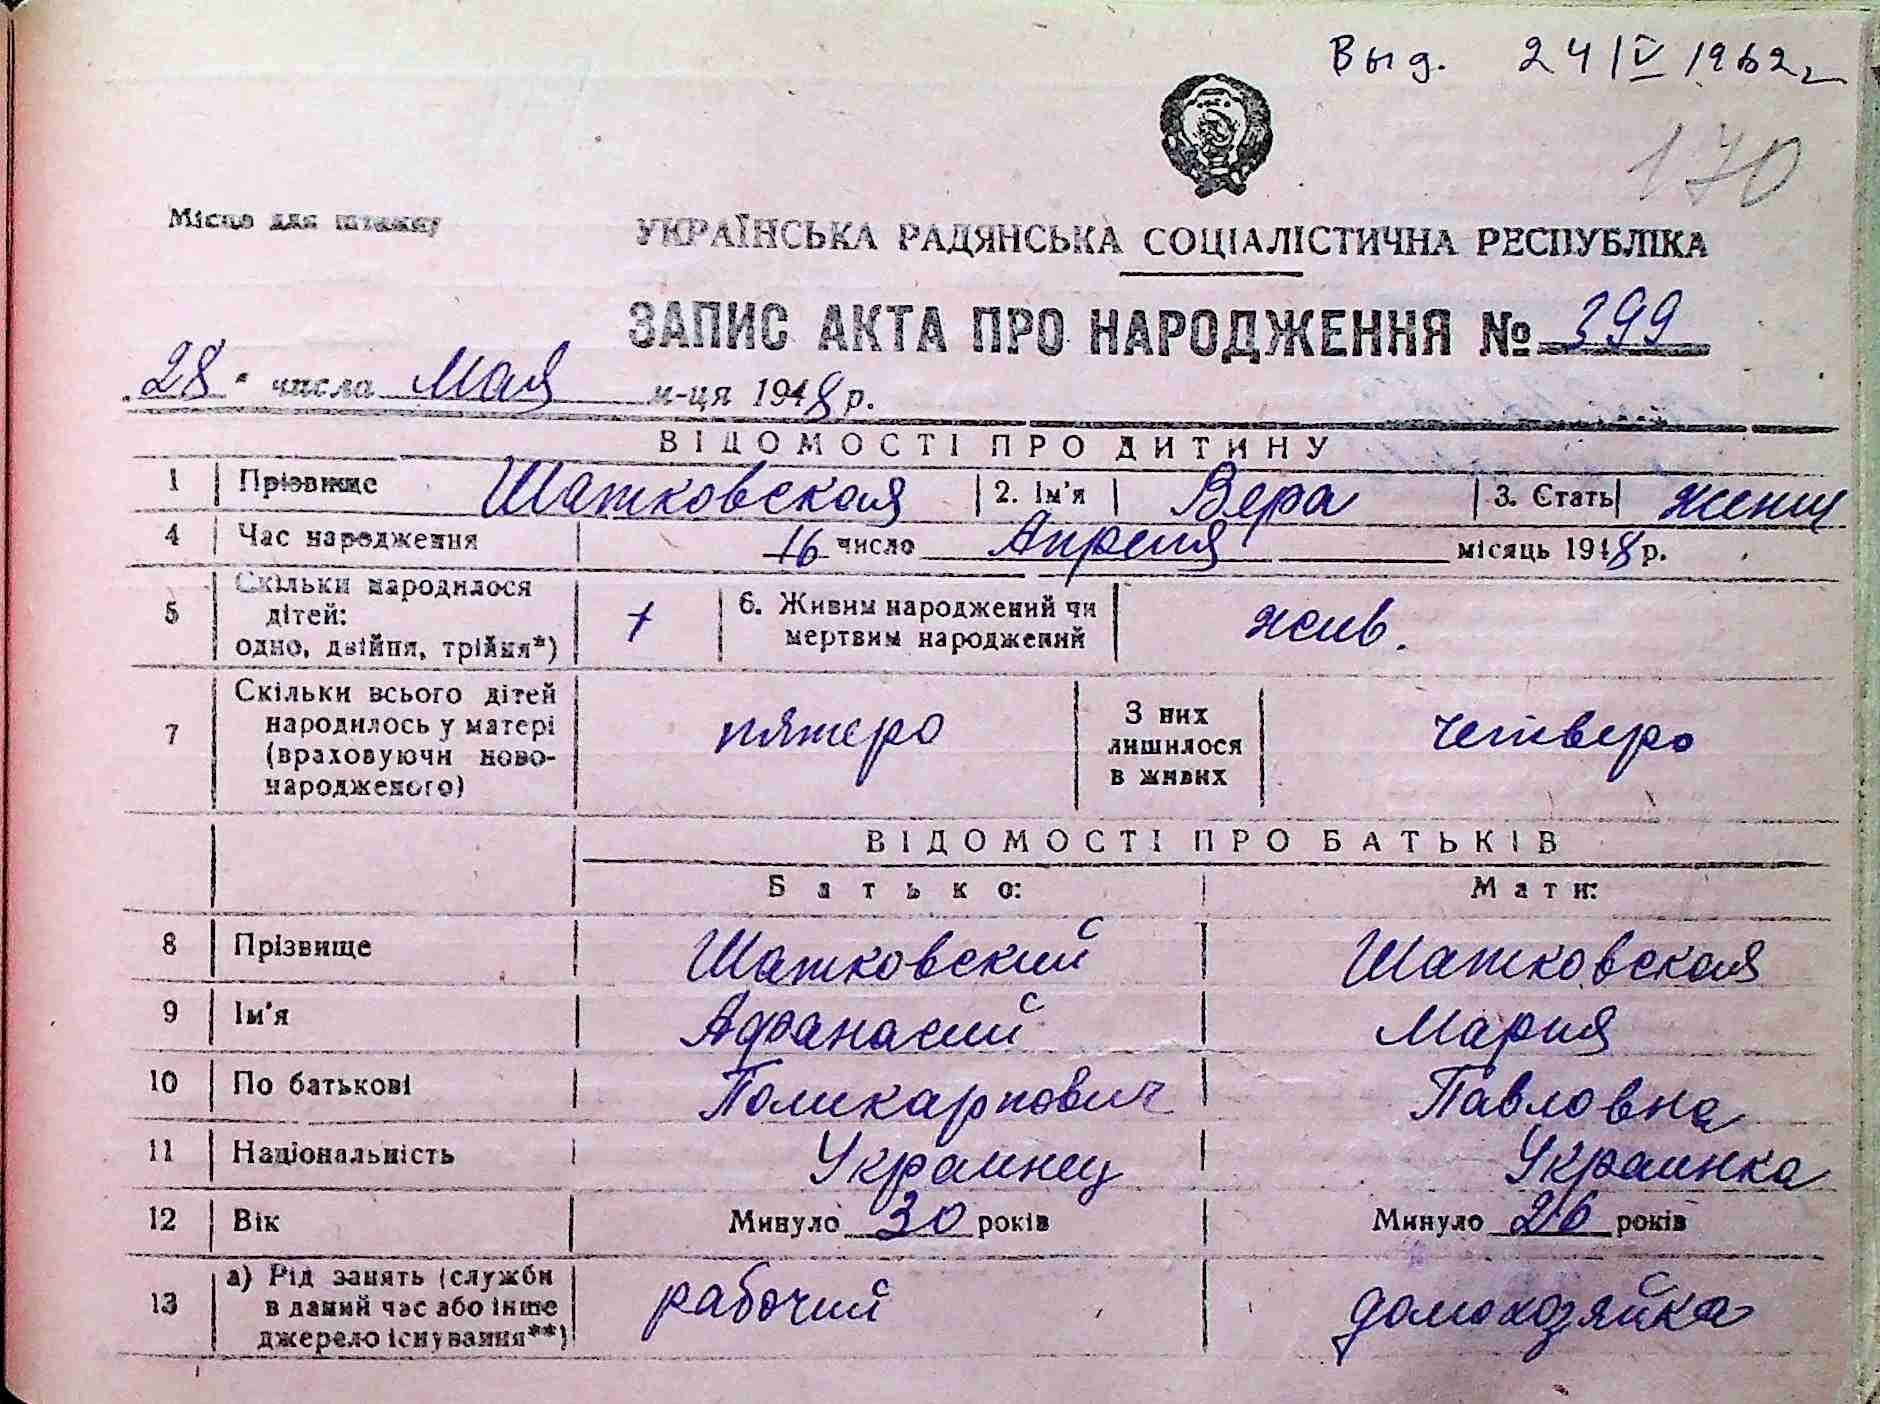 Выд. 24 IV 1962 г
170
Місце для штампу
УКРАЇНСЬКА РАДЯНСЬКА СОЦІАЛІСТИЧНА РЕСПУБЛІКА
ЗАПИС АКТА ПРО НАРОДЖЕННЯ № 399
28 " числа Мая м-ця 1948 р.
ВІДОМОСТІ ПРО ДИТИНУ
1 Прізвище Шатковская 2. Ім'я Вера 3. Стать женщ
4 Час народження 16 число Апреля місяць 1948 р.
5 Скільки народилося дітей: одно, двійня, трійня*) 1 6. Живим народжений чи мертвим народжений жив.
7 Скільки всього дітей народилось у матері (враховуючи ново-народженого) пятеро З них лишилося в живих четверо
ВІДОМОСТІ ПРО БАТЬКІВ
Батько: Мати:
8 Прізвище Шатковский Шатковская
9 Ім'я Афанасий Мария
10 По батькові Поликарпович Павловна
11 Національність Украинец Украинка
12 Вік Минуло 30 років Минуло 26 років
13 а) Рід занять (служби в даний час або інше джерело існування**) рабочий домохозяйка